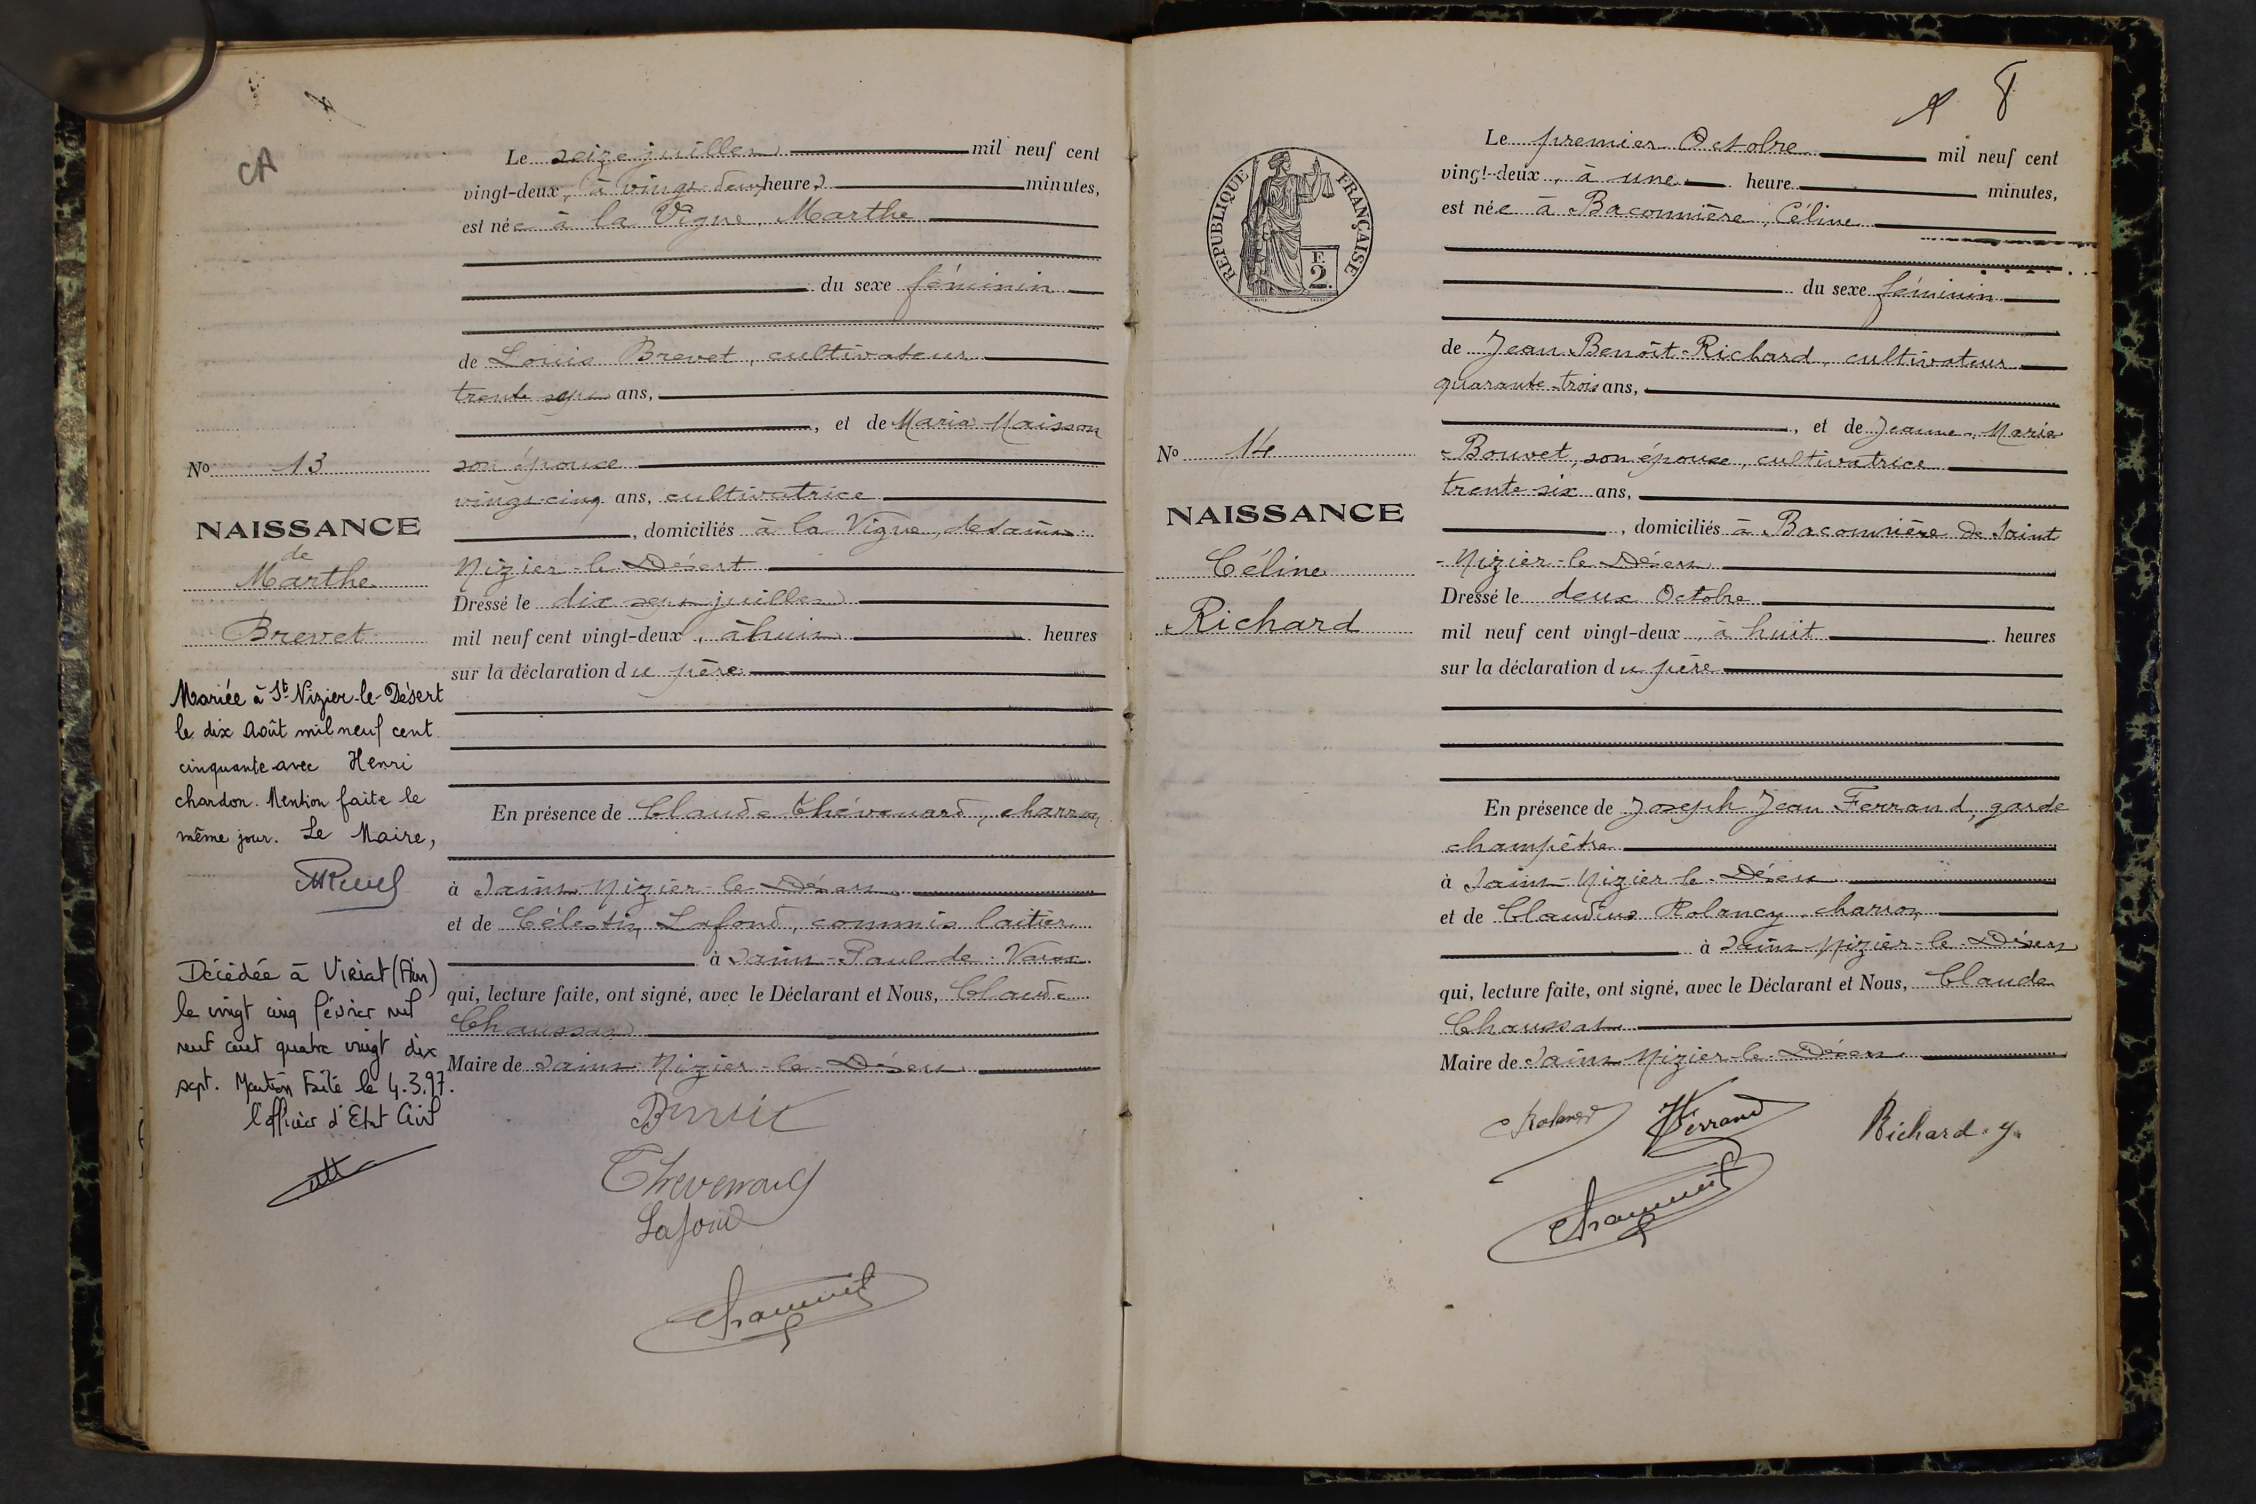 CA
Le seize juillet mil neuf cent
vingt-deux, à vingt deux heures minutes,
est née à la Vigne, Marthe
du sexe féminin
de Louis Brevet, cultivateur
trente sept ans,
, et de Maria Maisson
son épouse
vingt-cinq ans, cultivatrice
, domiciliés à la Vigne, de Saint
Nizier-le-Désert
Dressé le dix sept juillet
mil neuf cent vingt-deux, à huit heures
sur la déclaration du père
En présence de Claude Thévenard, charron
à Saint-Nizier-le-Désert
et de Célestin Lafond, commis laitier
à Saint-Paul-de-Varax
qui, lecture faite, ont signé, avec le Déclarant et Nous, Claude
Chaussat
Maire de Saint-Nizier-le-Désert
Thevenard
Lafond
No 13
NAISSANCE
de
Marthe
Brevet
Mariée à St Nizier-le-Désert
le dix Août mil neuf cent
cinquante avec Henri
chardon. Mention faite le
même jour. Le Maire,
Décédée à Viriat (Ain)
le vingt cinq février mil
neuf cent quatre vingt dix
sept. Mention faite le 4.3.97.
l'officier d'Etat Civil
8
RÉPUBLIQUE FRANÇAISE
F.
2.
Le premier Octobre mil neuf cent
vingt-deux, à une heure minutes,
est née à Baconnière, Céline
du sexe féminin
de Jean Benoît Richard, cultivateur
quarante-trois ans,
, et de Jeanne-Marie
Bouvet, son épouse, cultivatrice
trente-six ans,
, domiciliés à Baconnière de Saint
-Nizier-le-Désert
Dressé le deux Octobre
mil neuf cent vingt-deux, à huit heures
sur la déclaration du père
En présence de Joseph Jean Ferrand, garde
champêtre
à Saint-Nizier-le-Désert
et de Claudius Rolancy, charron
à Saint-Nizier-le-Désert
qui, lecture faite, ont signé, avec le Déclarant et Nous, Claude
Chaussat
Maire de Saint-Nizier-le-Désert
Ferrand
Richard. J.
No 14
NAISSANCE
Céline
Richard